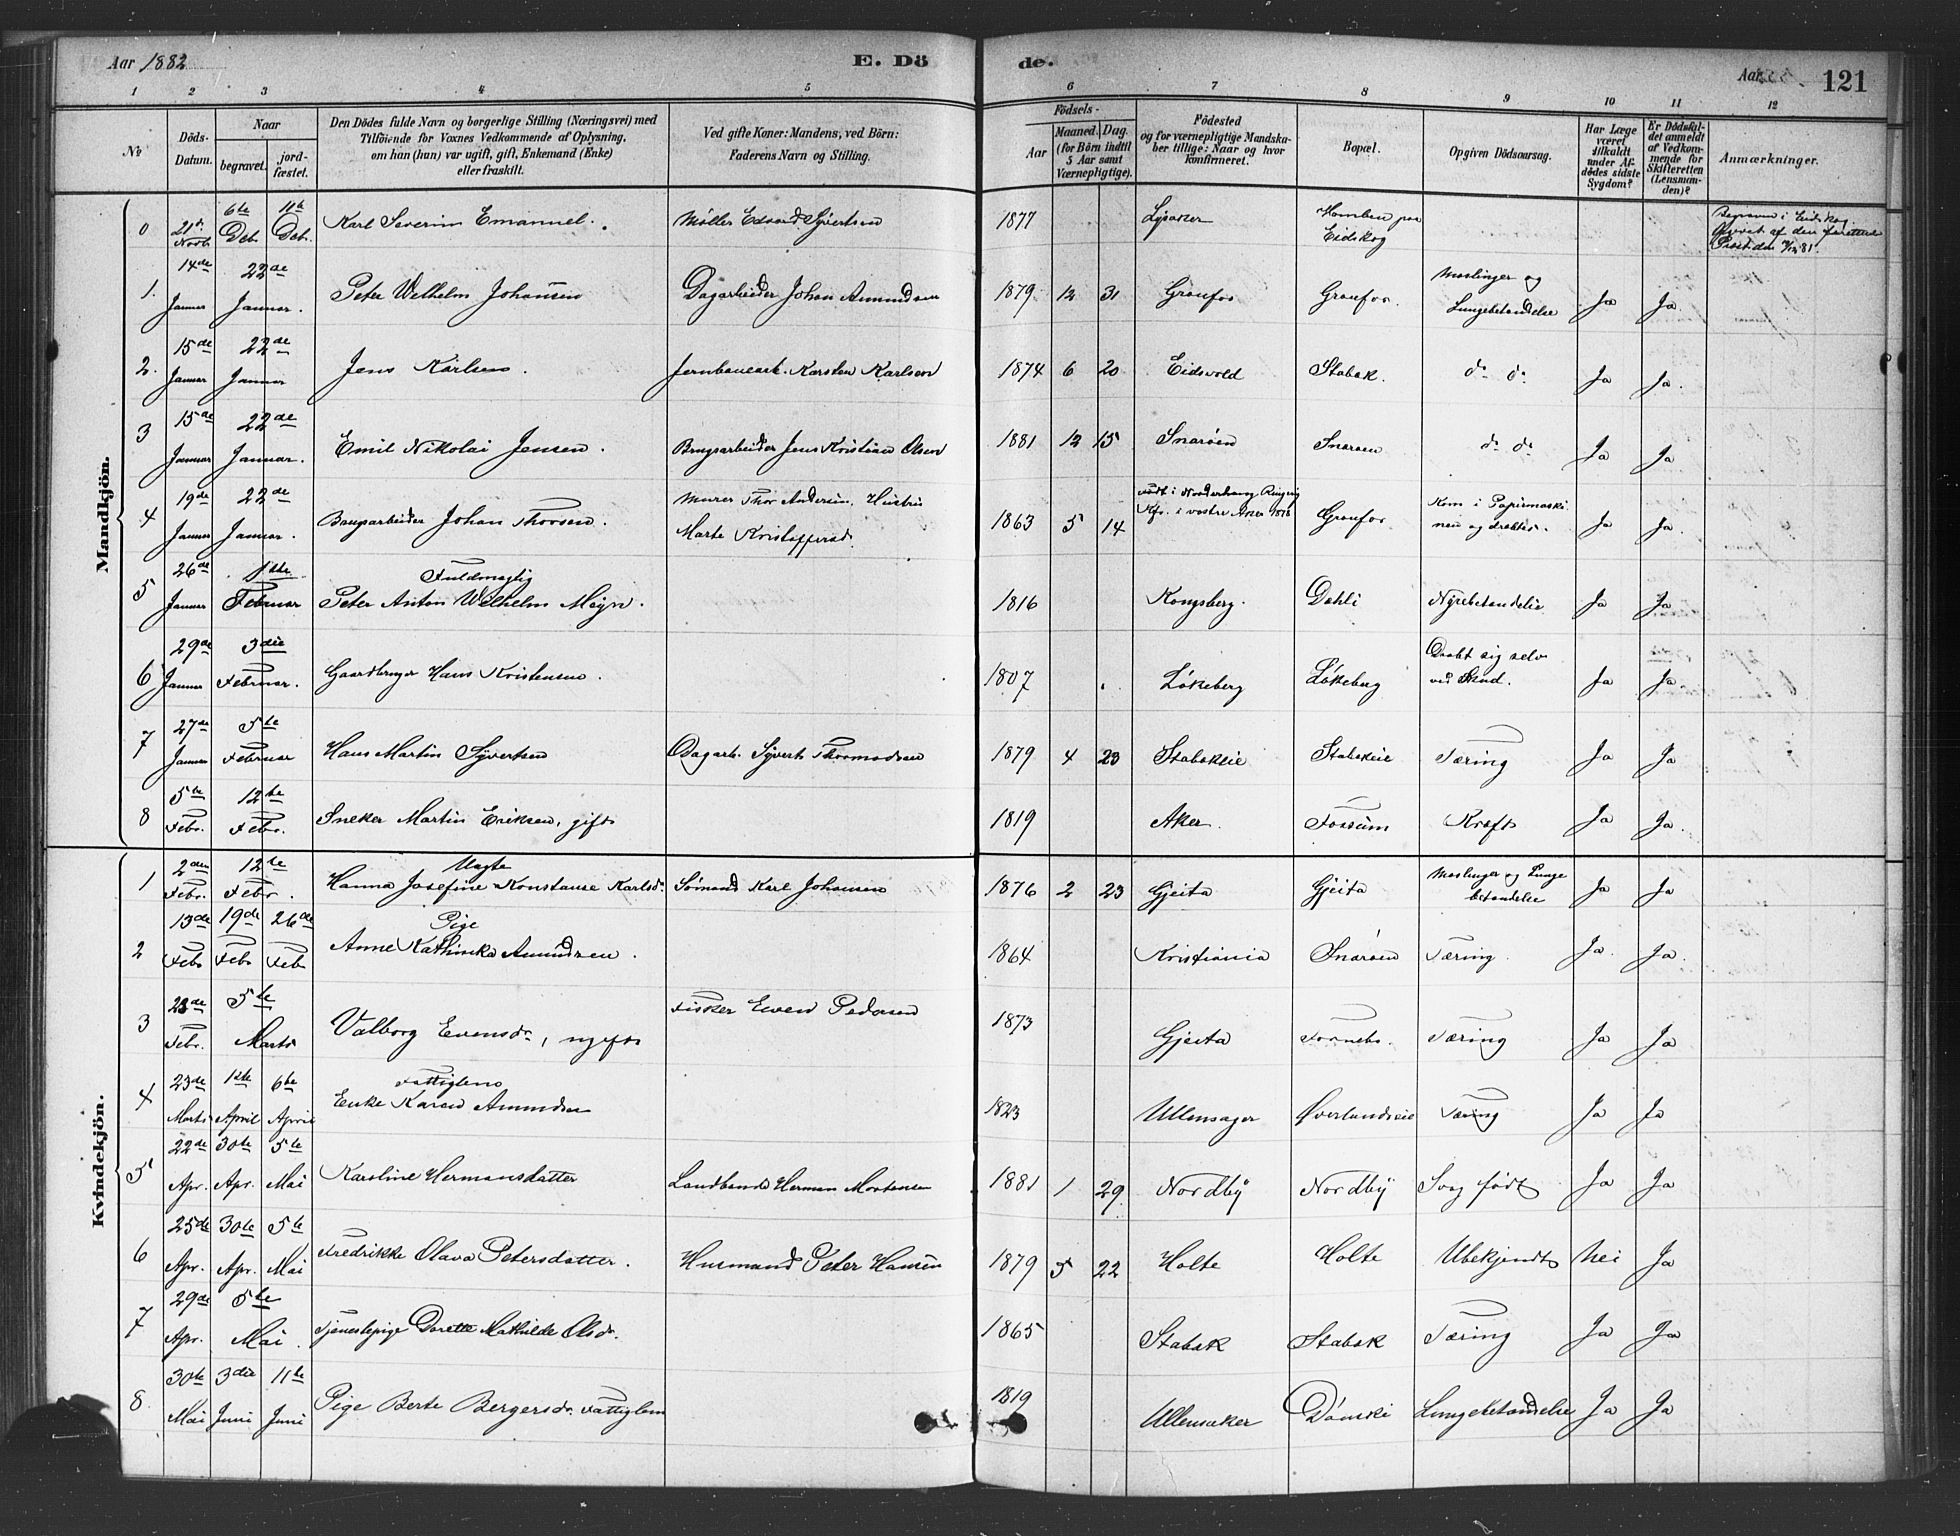 Aar 1882 E. Dö de. Aar 121
1 2 3 4 5 6 7 8 9 10 11 12
№
Döds-Datum.
Naar
begravet.
jord-fæstet.
Den Dödes fulde Navn og borgerlige Stilling (Næringsvei) med
Tilföiende for Voxnes Vedkommende af Oplysning,
om han (hun) var ugift, gift, Enkemand (Enke)
eller fraskilt.
Ved gifte Koner: Mandens, ved Börn:
Faderens Navn og Stilling.
Födsels-
Aar
Maaned. Dag.
(for Börn indtil
5 Aar samt
Værnepligtige).
Födested
og for værnepligtige Mandska-
ber tillige: Naar og hvor
konfirmeret.
Bopæl.
Opgiven Dödsaarsag.
Har Læge
været
tilkaldt
under Af-
dödes sidste
Sygdom?
Er Dödsfal-
det anmeldt
af Vedkom-
mende for
Skifteretten
(Lensman-
den)?
Anmærkninger.
Mandkjön.
0 21de Novb. 6te Deb. 11te Deb. Karl Severin Emanuel. Møller Edvard Syvertsen 1877 Lysaker Eidskog Begraven i Eidskog.
1. 14de Januar 22de Januar. Peter Welhelm Johansen Dagarbeider Johan Amundsen 1879 12 31 Granfos Granfos. Meslinger og Lungebetændelse Ja Ja
2. 15de Januar 22de Januar Jens Karlsen. Jernbanearb. Karsten Karlsen 1874 6 20 Eidsvold Stabæk. do do Ja Ja.
3 15de Januar 22de Januar. Emil Nikolai Jensen. Brugsarbeider Jens Kristian Olsen 1881 12 15 Snarøen Snarøen do do Ja Ja
4 19de Januar 22de Januar. Brugsarbeider Johan Thorsen. Murer Thor Andersen. Hustru Marte Kristoffersd. 1863 5 14 Født i Norderhaug Ringerig Kfr. i vestre Aker 1878 Granfos Kom i Papirmaskinen og dræbtes. Ja Ja.
5 26de Januar 1ste Februar Fuldmægtig Peter Anton Wilhelm Meyn. 1816 Kongsberg. Dæhli Nyrebetændelse Ja Ja
6 29de Januar 3die Februar. Gaardbruger Hans Kristensen 1807 Løkeberg Løkeberg Dræbt sig selv ved Skud. Ja Ja
7 27de Januar 5te Februar Hans Martin Syvertsen Dagarb. Syvert Thormodsen 1879 4 23 Stabækeie Stabækeie Tæring Ja Ja
8 5te Febr. 12te Febr. Sneker Martin Eriksen, gift 1819 Aker. Fossum Kræft Ja Ja.
Kvindekjön.
1 2den Febr. 12te Febr. Ungte Hanna Josefine Konstanse Karlsd. Sømand Karl Johansen 1876 2 23 Gjeita Gjeita Meslinger og Lungebetændelse Ja Ja
2 13de Febr 19de Febr 26de Feb Pige Anne Kathinka Amundsen. 1864 Kristiania Snarøen Tæring. Ja. Ja.
3 23de Febr. 5te Marts Valborg Evensdr., ugift Fisker Even Pedersen 1873 Gjeita Fornebo. Tæring Ja Ja
4 23de Marts 1ste April 6te April Fattiglem Enke Karen Amundsen 1823 Ullensager Øverlandseie Tæring Ja Ja
5 22de Apr. 30te Apr. 5te Mai Karoline Hermansdatter Landhand. Herman Mortensen 1881 1 29 Nordby Nordby Svag født Ja Ja
6 25de Apr. 30te Apr. 5te Mai Fredrikke Olava Petersdatter. Husmand Peter Hansen 1879 5 22 Holte Holte Ubekjendt Nei Ja
7 29de Apr. 5te Mai. Tjenestepige Dorette Mathilde Olsdr. 1865 Stabæk Stabæk Tæring Ja Ja
8. 30te Mai 3die Juni 11te Juni Pige Berte Bergersdr. Fattiglem 1819 Ullensaker Dønski Lungebetændelse Ja Ja